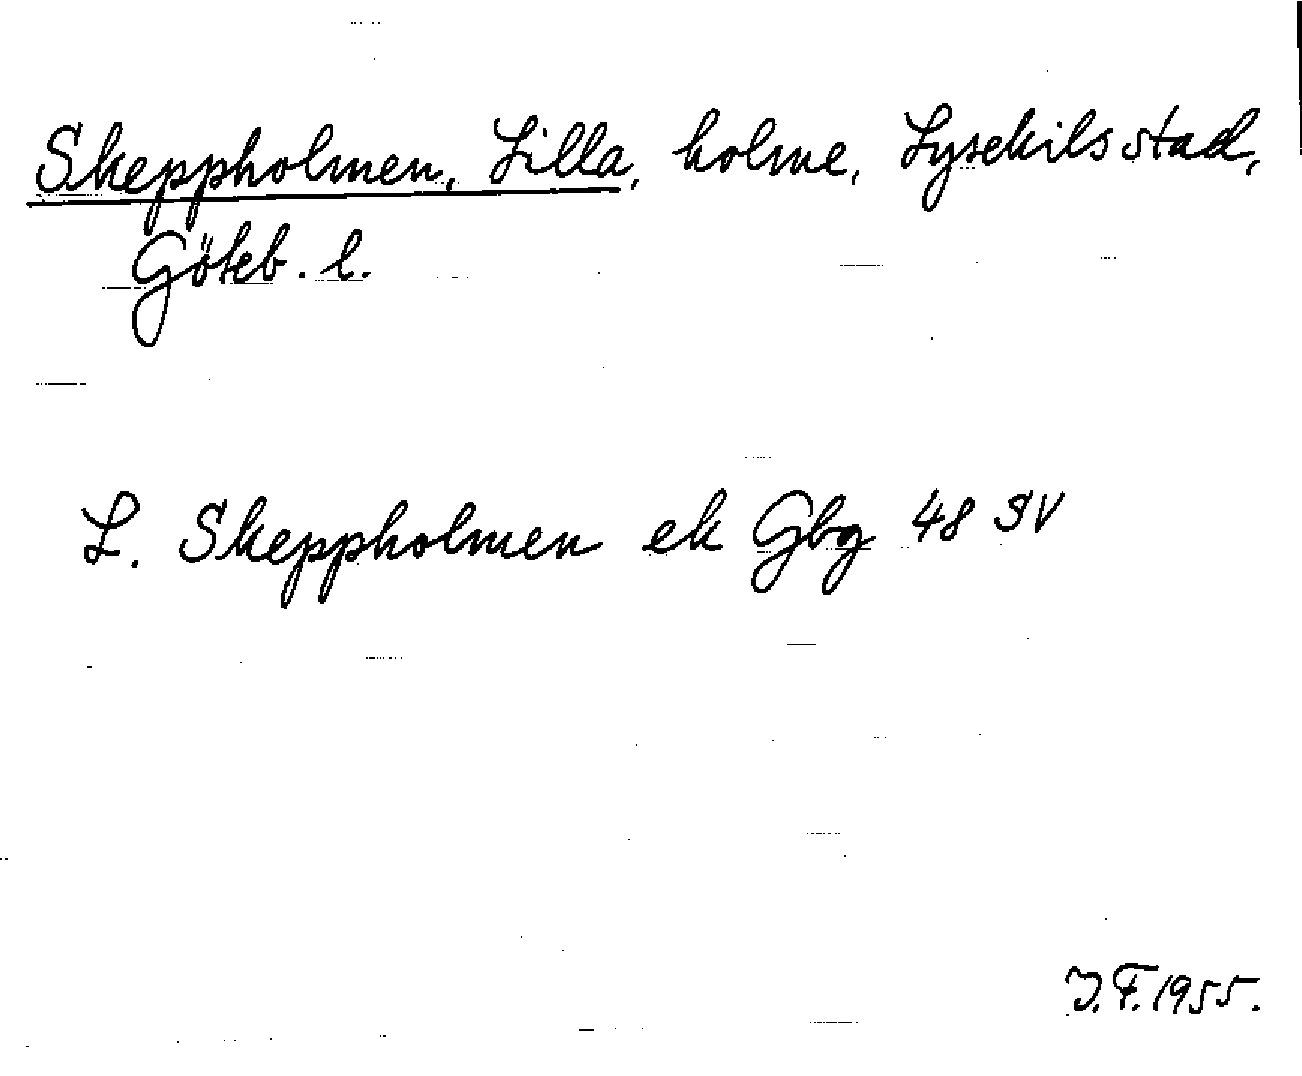 Skeppholmen, Lilla, holme, Lysekils stad,
Göteb. l.
L. Skeppholmen ek Gbg 48 SV
J.F. 1955.